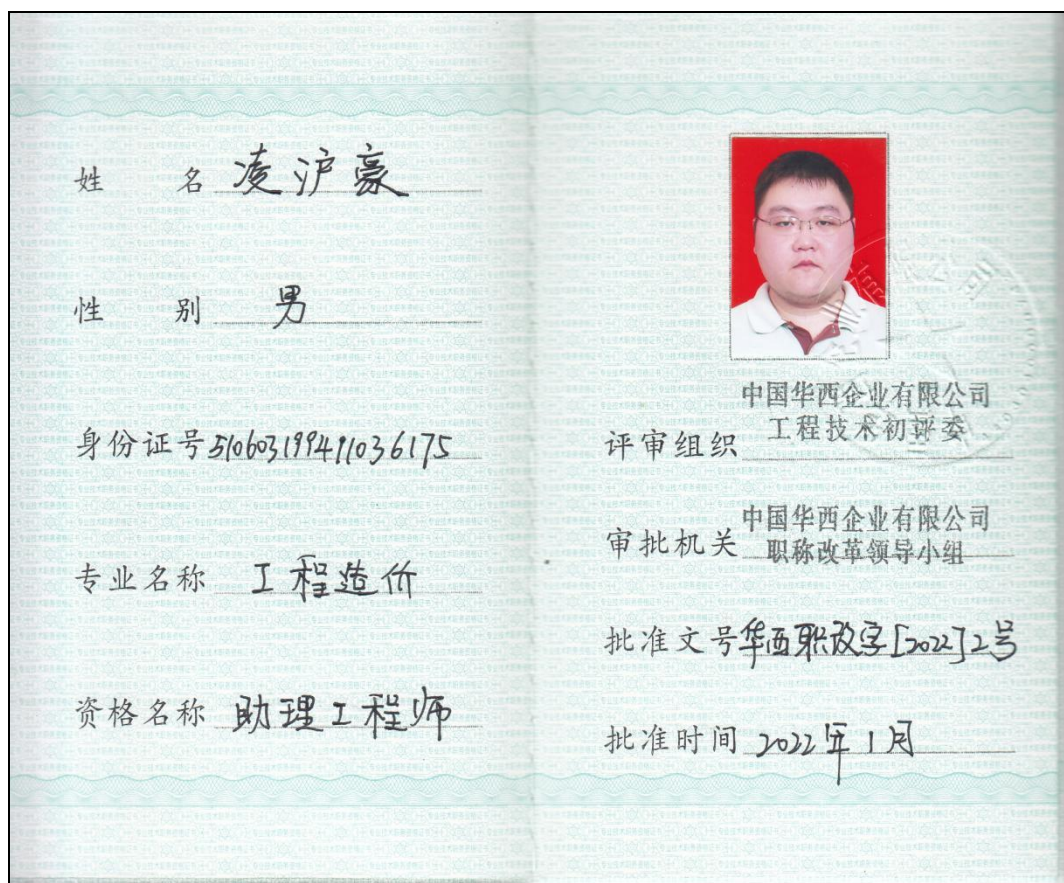 姓 名 凌沪豪
性 别 男
身份证号 510603199411036175
专业名称 工程造价
资格名称 助理工程师
中国华西企业有限公司
评审组织 工程技术初评委
中国华西企业有限公司
审批机关 职称改革领导小组
批准文号 华西职改字[2022]2号
批准时间 2022年1月